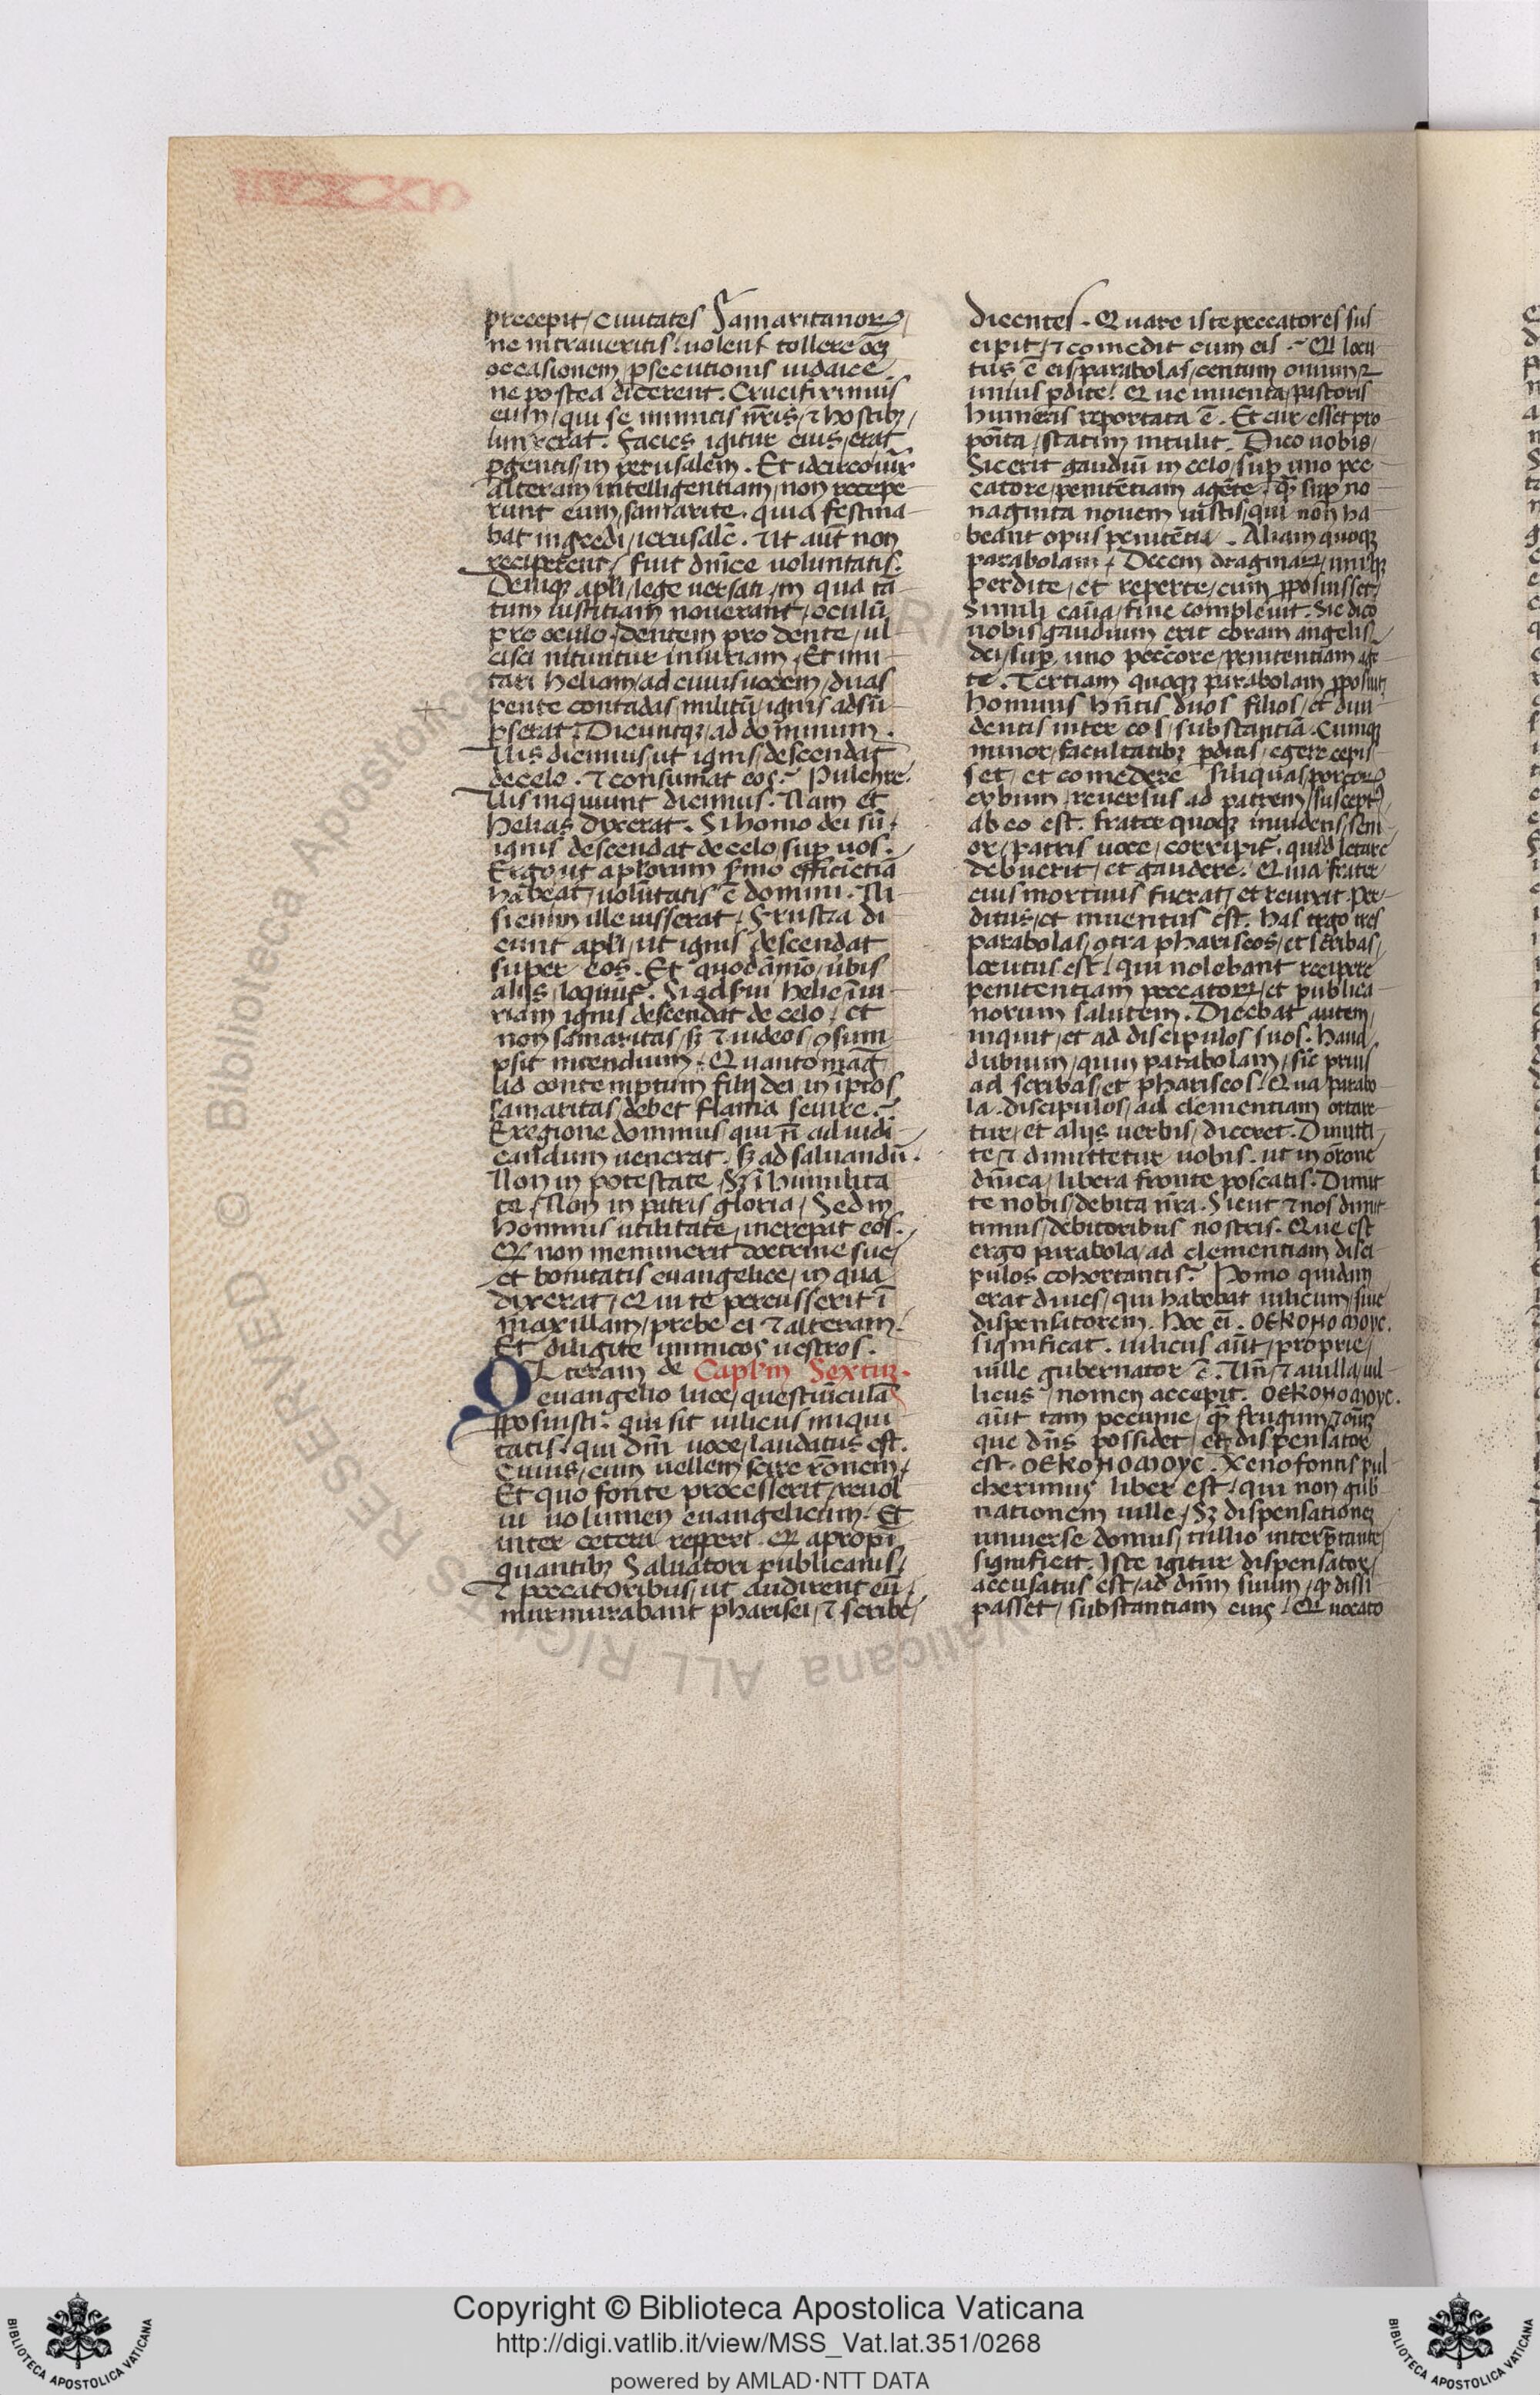 precepit / Ciuitates Samaritanoꝝ /
ne intraueritis / uolens tollere oēꝫ
occasionem / ꝑsecutionis iudaice
ne postea dicerent. Crucifiximus
eum / qui se inimicis nr̄is / ⁊ hostibꝫ
iunxerat. Facies igitur eius / erat
ꝑgentis / in yerusalem. Et idcirco iux̄
alteram intelligentiam / non recepe
runt eum / samarite. quia festina
bat ingredi / ierusalē. Ut aūt non
reciperent / fuit dnīce uoluntatis.
Deniqꝫ apl̄i / lege uersati / in qua tā
tum iustitiam nouerant / oculū
pro oculo / dentem pro dente / ul
cisci nituntur iniuriam / Et imi
tari heliam / ad cuius uocem / duas
pente contadas / militū / ignis adsū
pserat. Dicuntqꝫ / ad dominum.
Uis dicimus / ut ignis / descendat
de celo. ⁊ consumat eos? Pulchre.
Uis inquiunt dicimus. Nam et
helias dixerat. Si homo dei sū /
ignis descendat de celo / suꝑ uos.
Ergo ut apl̄orum ẜmo efficiētiā
habeat / uolūtatis ē domini. Ni
si enim ille iusserat / Frustra di
cunt apl̄i / ut ignis descendat
super eos. Et quodāmō / ūbis
alijs / loquiur̄. Si ad ẜui helie īiu
riam ignis descendat de celo / et
non samaritas / sꝫ ⁊ iudeos / ꝯsum
psit incendium. Quanto maḡ
ad contemptum filij dei / in īpios
samaritas / debet flāma seuire.
E regione dominus / qui n̄ ad iudi
candum uenerat. sꝫ ad saluandū.
Non in potestate / Sꝫ ī humilita
te / Non in patris gloria / Sed in
hominis utilitate / increpat eos.
Ꝙ non meminerit doctrine sue /
et bonitatis euangelice / in qua
dixerat / Qui te percusserit ī
maxillam / prebe ei ⁊ alteram.
Et diligite inimicos uestros.
OLteram de Capl'm Sextuꝫ.
euangelio luce / questiūculā
ꝓposuisti. qui sit uilicus iniqui
tatis / qui dn̄i uoce / laudatus est.
Cuius / cum uellem scire rōnem /
Et quo fonte processerit / reuol
ui uolumen euangelicum. Et
inter cetera repperi. Ꝙ apropī
quantibꝫ Saluatori publicanis /
⁊ peccatoribus / ut audirent eū /
murmurabant pharisei / ⁊ scribe /
dicentes. Quare iste peccatores sus
cipit / ⁊ comedit cum eis. Qui locu
tus ē eis / parabolas / centum ouiumꝝ
unius ꝑdite / Que inuenta / pastoris
humeris reportata ē. Et cur esset pro
poīta / statim intulit. Dico uobis /
Sic erit gaudiū in celo / suꝑ uno pec
catore / penitētiam agēte / ꝙ̄ suꝑ no
naginta nouem iustis / qui non ha
beant opus penitētia. Aliam quoqꝫ
parabolam / Decem dragmaꝝ / uniusqꝫ
perdite / et reperte / cum ꝓposuisset /
Simili cauīa / fine compleuit. Sic dico
uobis gaudium erit coram angelis
dei / suꝑ uno peccōre / penitentiam agē
te. Tertiam quoqꝫ parabolam ꝓposuit
hominis hn̄tis duos filios / et diui
dentis inter eos / substantiā. Cumqꝫ
minor / facultatibꝫ ꝑditis / egere cepis
set / et comedere siliquas / porcoꝝ
cybum / reuersus ad patrem / susceptꝰ
ab eo est. Frater quoqꝫ inuidens / seni
or / patris uoce / corripitur̄. quid letare
debuerit / et gaudere. Quia frater
eius mortuus fuerat / et reuixit. Per
ditus / et inuentus est. has ergo tres
parabolas / ꝯtra phariseos / et scribas /
locutus est / qui nolebant recipere
penitentiam peccatoꝝ / et publica
norum salutem. Dicebat autem
inquit / et ad discipulos suos. haud
dubium / quin parabolam / sic prius
ad scribas / et phariseos / Qua parabo
la. discipulos / ad clementiam ortare
tur / et alijs uerbis / diceret. Dimitti
te ⁊ dimittetur uobis. ut in orōne
dnīca / libera fronte poscatis. Dimit
te nobis / debita nr̄a. Sicut ⁊ nos dimit
timus / debitoribus nostris. Que est
ergo parabola / ad clementiam disci
pulos cohortantis? Homo quidam
erat diues / qui habebat uilicum / siue
dispensatorem. hoc eī. OEKONOMOYC.
significat. uilicus aūt / proprie /
uille gubernator ē. Un̄ / ⁊ a uilla / uil
licus / nomen accepit. OEKONOMOYC.
aūt tam pecunie / ꝙ̄ frugum / ⁊ oīuꝫ
que dn̄s possidet / et dispensator
est. OEKONOMOYC. Xenofontis pul
cherimus liber est / qui non gub
nationem uille / Sꝫ dispensationeꝫ
uniuerse domus / tullio interp̄tante /
significat. Iste igitur dispensator /
accusatus est / ad dn̄m suum / ꝙ dissi
passet / substantiam eius / Qui uocato
Copyright © Biblioteca Apostolica Vaticana
http://digi.vatlib.it/view/MSS_Vat.lat.351/0268
powered by AMLAD·NTT DATA
BIBLIOTECA APOSTOLICA VATICANA
BIBLIOTECA APOSTOLICA VATICANA